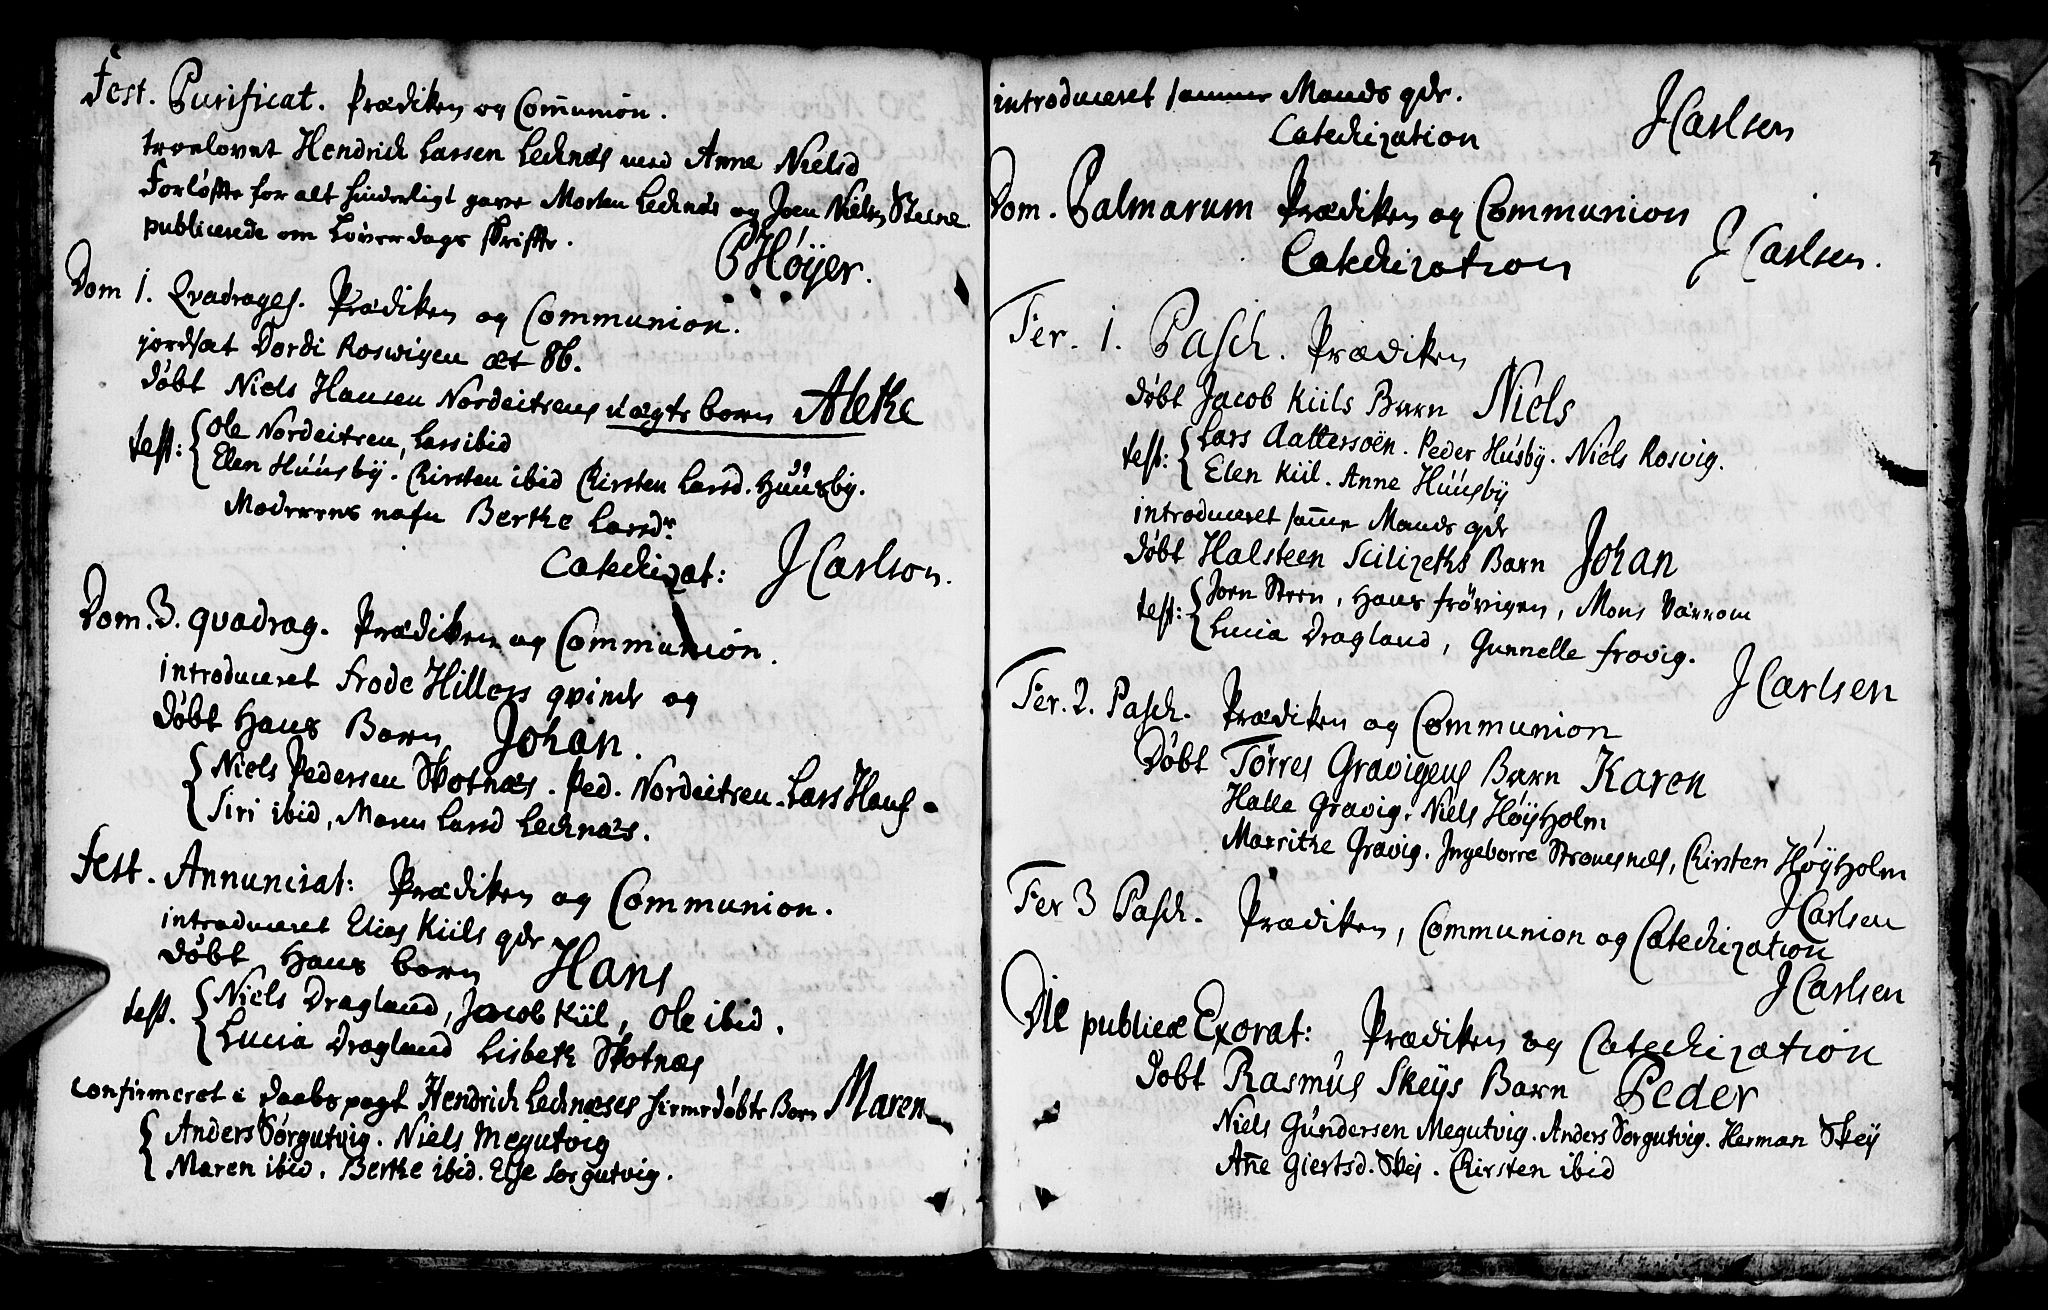 Fest. Purificat. Prædiken og Com̄union.
troelovet Hendrich Larsen Lechnæs med Anne Nielsd
Forløffte for alt hinderligt gavre Morten Lechnæs og Joen Nielsen Steene
publicerede om Løverdags skriffte.
PHøÿer.
Dom 1. Qvadrages. Prædiken og Communion.
jordsat Dordi Roswigen æt 86.
døbt Niels Hansen Nordeitrens uægte børn Alethe
test: Ole Nordeitren, Lars ibid
Elen Húúsbÿ. Chirsten ibid Chirsten Larsd. Húúsbÿ.
Moderens nafn Berthe Larsdr
Catechizat: JCarlson.
Dom. 3. quadrag. Prædiken og Communion.
introduceret Frode Hillers qvinde og
døbt Hans Barn Johan.
Niels Pedersen Skotnæs. Ped. Nordeitren. Lars Hans
Siri ibid, Maren Larsd Lechnæs.
Fest. Annunciat: Prædiken og Communion.
introduceret Elias Kiils qde
døbt Hans barn Hans
test. Niels Dragland, Jacob Kiil, Ole ibid.
Lucia Dragland Lisbeth Skotnæs
confirmeret i Daabs pagt Hendrich Lechnæses hiemedøbte Barn Maren
Anders Sørgutvig. Niels Megutvig
Maren ibid. Berthe ibid. Else Sørgutvig.
introduceret samme Mands qde.
Catechization JCarlsen
Dom. Palmarum Prædiken og Communion
Catechization J Carlsen.
Fer. 1. Pasch. Prædiken
døbt Jacob Kiils Barn Niels
test: Lars Aattersoën. Peder Húsbÿ. Niels Rosvig.
Elen Kiil. Anne Húúsbÿ
introduceret sam̄e Mands qde
døbt Halsteen Scilizeths Barn Johan
test: Joen Steen, Hans Frøvigen, Mons Varrom
Lucia Dragland, Gunnelle Frøvig.
JCarlsen
Fer. 2. Pasch. Prædiken og Communion
Døbt Tørres Gravigens Barn Karen
Halle Gravig. Niels Høÿholm
Marrithe Gravig. Ingeborre Stranesnæs, Chirsten Høÿholm
JCarlsen
Fer 3 Pasch. Prædiken, Communion og Catechization
JCarlsen
Die publicæ Exorat: Prædiken og Catechization
Døbt Rasmús Skeÿs Barn Peder
Niels Gúndersen Megutvig. Anders Sørgutvig. Herman Skeÿ
An̄e Giertsd. Skej. Chirsten ibid